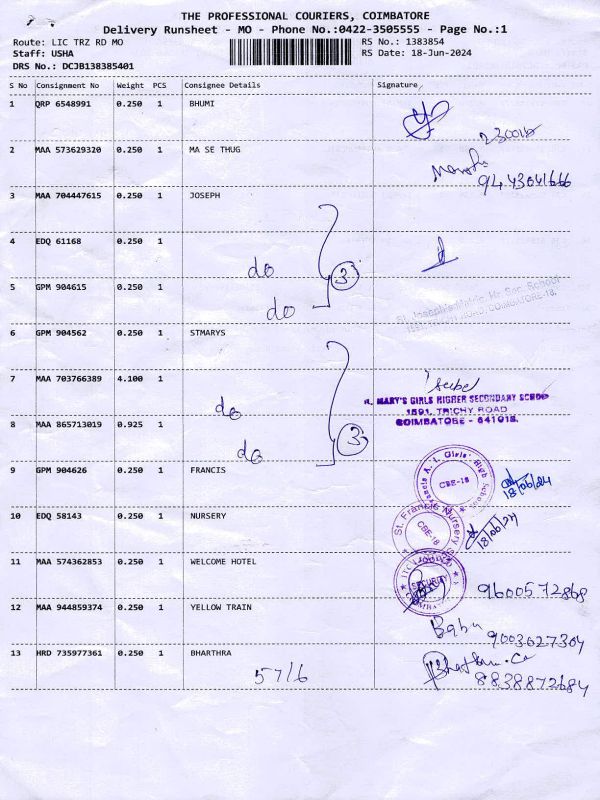 THE PROFESSIONAL COURIERS, COIMBATORE
Delivery Runsheet - MO - Phone No.:0422-3505555 - Page No.:1
Route: LIC TRZ RD MO RS No.: 1383854
Staff: USHA RS Date: 18-Jun-2024
DRS No.: DCJB138385401
S No Consignment No Weight PCS Consignee Details Signature
1 QRP 6548991 0.250 1 BHUMI
2 MAA 573629320 0.250 1 MA SE THUG
9443041666
3 MAA 704447615 0.250 1 JOSEPH
4 EDQ 61168 0.250 1
do 3
5 GPM 904615 0.250 1
do
St. Joseph's Matric Hr Sec School
COIMBATORE-18.
6 GPM 904562 0.250 1 STMARYS
7 MAA 703766389 4.100 1
do
MARY'S GIRLS HIGHER SECONDARY SCHOO
1591, TRICHY ROAD
COIMBATORE - 641018.
8 MAA 865713019 0.925 1
do 3
9 GPM 904626 0.250 1 FRANCIS
Francis A. I. Girls' High School
CBE-18
18/06/24
10 EDQ 58143 0.250 1 NURSERY
St. Francis Nursery
CBE-18
18/06/24
11 MAA 574362853 0.250 1 WELCOME HOTEL
SECURITY
9600572868
12 MAA 944859374 0.250 1 YELLOW TRAIN
Babu
9003027304
13 HRD 735977361 0.250 1 BHARTHRA
57/6
8838872684